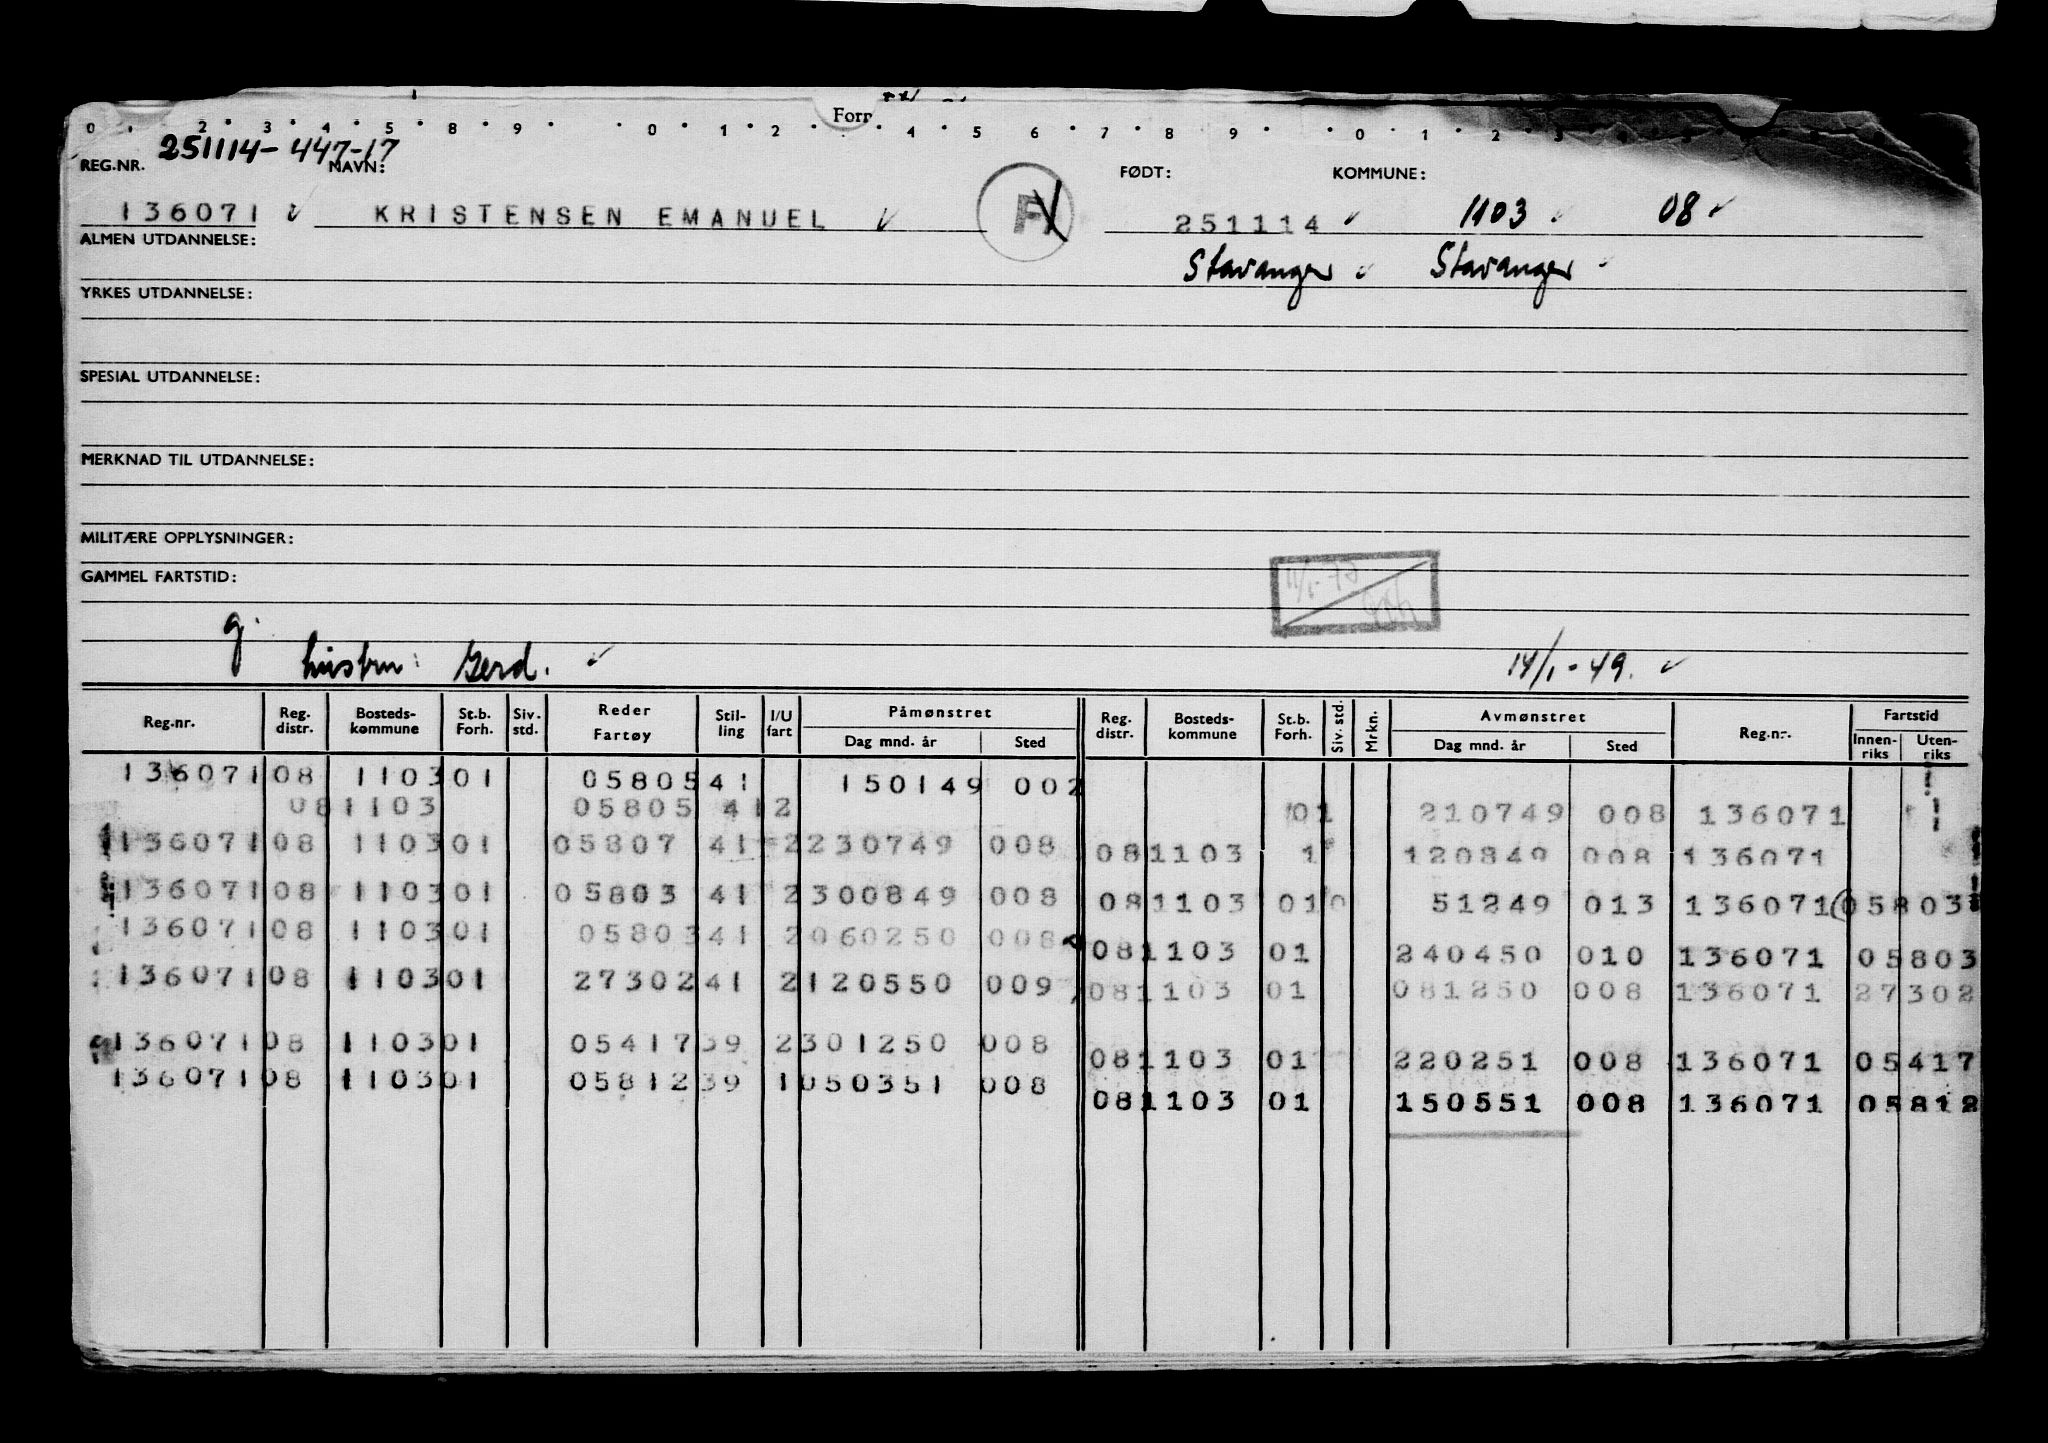 Forr
0 2 3 4 5 8 9 0 1 2 4 5 6 7 8 9 0 1 2 3
251114-447-17
REG.NR. NAVN: FØDT: KOMMUNE:
136071 KRISTENSEN EMANUEL 251114 1103 08
ALMEN UTDANNELSE: Stavanger Stavanger
YRKES UTDANNELSE:
SPESIAL UTDANNELSE:
MERKNAD TIL UTDANNELSE:
MILITÆRE OPPLYSNINGER:
GAMMEL FARTSTID:
g.
hustru: Gerd. 14/1-49.
Reg.nr. Reg. distr. Bosteds-kommune St.b. Forh. Siv. std. Reder Fartøy Stil-ling I/U fart Påmønstret Dag mnd. år Sted Reg. distr. Bosteds-kommune St.b. Forh. Siv. std. Mrkn. Avmønstret Dag mnd. år Sted Reg.nr. Fartstid Innen-riks Uten-riks
136071 08 1103 01 05805 41 150149 002
08 1103 05805 41 2 01 210749 008 136071
136071 08 1103 01 05807 41 2 230749 008 08 1103 1 120849 008 136071
136071 08 1103 01 05803 41 2 300849 008 08 1103 01 0 51249 013 136071 05803
136071 08 1103 01 05803 41 2 060250 008 08 1103 01 240450 010 136071 05803
136071 08 1103 01 27302 41 2 120550 009 08 1103 01 081250 008 136071 27302
136071 08 1103 01 05417 39 2 301250 008 08 1103 01 220251 008 136071 05417
136071 08 1103 01 05812 39 1 050351 008 08 1103 01 150551 008 136071 05812